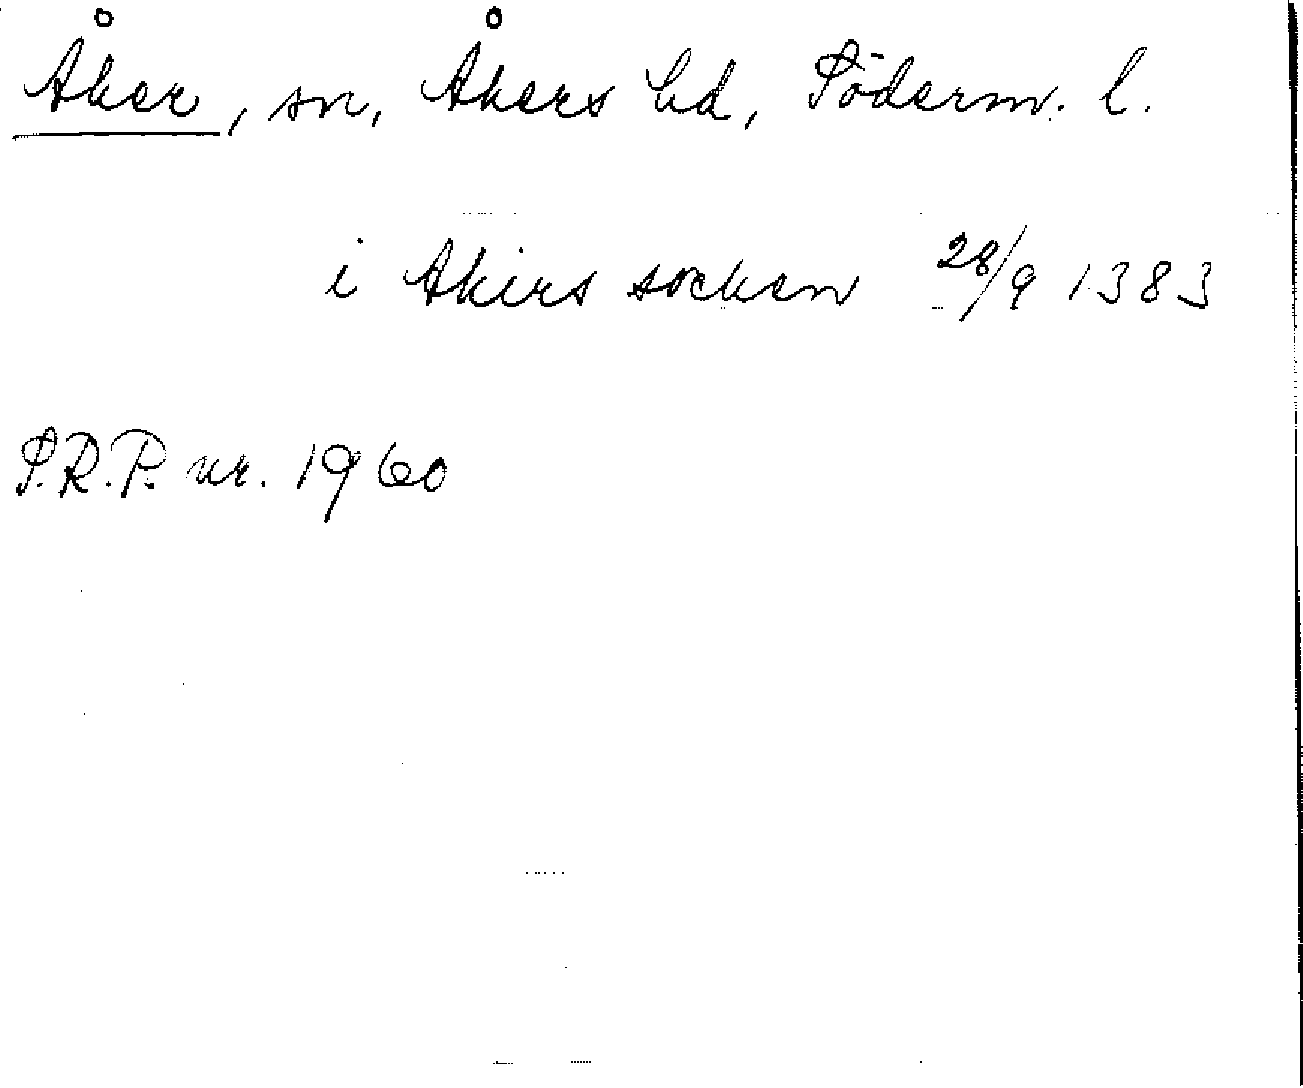 Åker, sn, Åkers hd, Söderm. l.
i Akirs socken 28/9 1383
S.R.P. nr. 1960